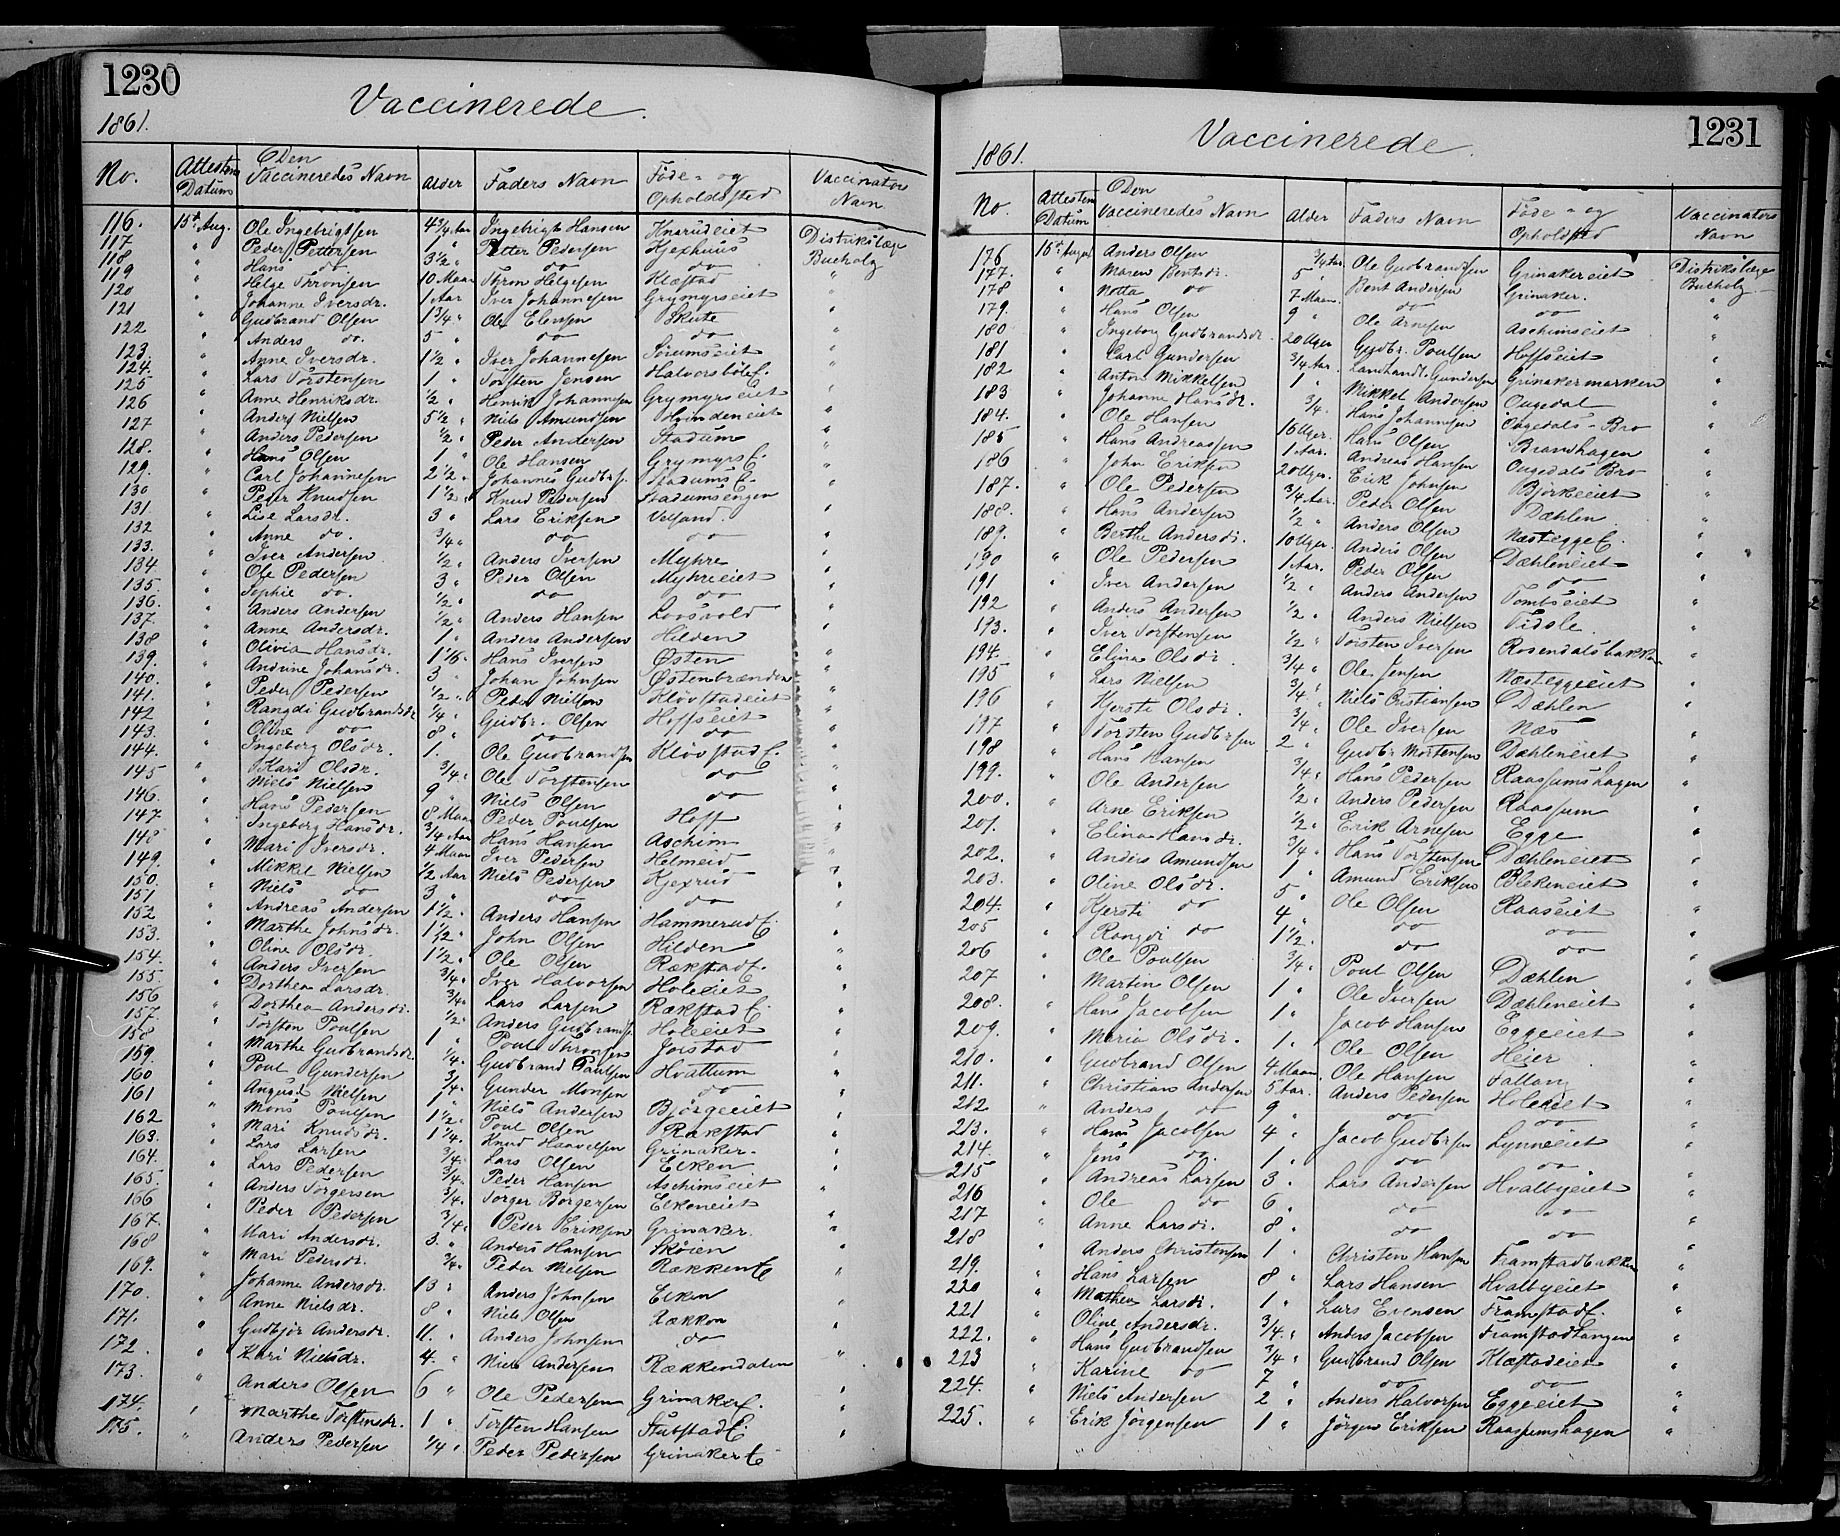 1230
1861.
Vaccinerede.
No. Attestens Datum Den Vaccineredes Navn Alder Faders Navn Føde- og Opholdssted Vaccinators Navn
116. 15de Aug. Ole Ingebrigtsen 4 3/4 Aar Ingebrigt Hansen Knarudeiet Distriktslæge
117 " Peder Pettersen 1 " Petter Pedersen Kjexhuus Bucholz
118 " Hans do 3 1/2 " do do "
119 " Helge Thronsen 10 Maan Thron Helgesen Klæstad "
120 " Johanne Iversdr. 1 Aar Iver Johannesen Grymyrseiet "
121 " Gudbrand Olsen 1 3/4 " Ole Elensen Skute "
122 " Anders do. 5 " do do "
123. " Anne Iversdr. 1 1/2 " Iver Johannesen Sørumseiet "
124. " Lars Torstensen 1 " Torsten Jensen Halvorsbøle E. "
125 " Anne Henriksdr. 1/2 " Henrik Johannesen Grymyrseiet "
126 " Anders Nielsen 5 1/2 " Niels Amundsen "
127 " Anders Pedersen 1/2 " Peder Andersen Stadum "
128. " Hans Olsen 1 " Ole Hansen Grymyrs E. "
129. " Carl Johannesen 2 1/2 " Johannes Gudbrs. Stadums E. "
130 " Peder Knudsen 1 1/2 " Knud Pedersen Stadumsengen "
131. " Lise Larsdr. 3 " Lars Eriksen Velsand. "
132 " Anne do. 3/4 " do do "
133. " Iver Andersen 1/2 " Anders Iversen Myhre "
134. " Ole Pedersen 3 " Peder Olsen Myhreeiet "
135. " Sophie do. 1/2 " do do "
136. " Anders Andersen 1/2 " Anders Hansen Loosvold "
137. " Anne Andersdr. 1 " Anders Andersen Hilden "
138 " Olivia Hansdr. 1 1/6 " Hans Iversen Østen "
139. " Andrine Johansdr. 3 " Johan Johnsen Østenbrænden "
140. " Peder Pedersen 1/2 " Peder Nielsen Kløvstadeiet "
141. " Rangdi Gudbrandsdr 1/4 " Gudbr. Olsen Hoffseiet "
142 " Oline do 8 " do do "
143. " Ingeborg Olsdr. 1. Ole Gudbrandsen Kløvstad E. "
144. " Kari Olsdr. 3/4 " Ole Torstensen do "
145 " Niels Nielsen 9 " Niels Olsen do "
146. " Hans Pedersen 8 Maan Peder Poulsen Hoff "
147 " Ingeborg Hansdr. 3/4 Aar Hans Hansen Aschim "
148 " Mari Iversdr. 4 Maan Iver Pedersen Helmeid "
149. " Mikkel Nielsen 1/2 Aar Niels Pedersen Kjexrud "
150. " Niels do 3 " do do "
151 " Andreas Andersen 1 1/2 " Anders Hansen Hammerud E. "
152 " Marthe Johnsdr. 1 1/2 " John Olsen Hilden "
153. " Oline Olsdr. 1 1/2 " Ole Olsen Rækstad E. "
154. " Anders Iversen 3/4 " Iver Halvorsen Holeeiet "
155. " Dorthea Larsdr. 3/4 " Lars Larsen Rækstad E. "
156 " Dorthea Andersdr. 1/2 " Anders Gudbrands. Holeeiet "
157. " Torsten Poulsen 1 " Poul Thronsen Jorstad "
158 " Marthe Gudbrandsdr 1/4 " Gudbrand Paulsen Hvattum "
159. " Poul Gundersen 3/4 " Gunder Monsen do "
160 " August Nielsen 1 " Niels Andersen Bjørgeeiet "
161 " Mons Poulsen 1 1/2 " Poul Olsen Rækstad "
162 " Mari Knudsdr. 1 1/4 " Knud Haavelsen Grinaker. "
163. " Lars Larsen 3/4 " Lars Olsen Elken "
164. " Lars Pedersen 3/4 " Peder Hansen Aschimseiet "
165. " Anders Torgersen 3/4 " Torger Borgersen Elkeneiet "
166 " Peder Pedersen 3/4 " Peder Eriksen Grinaker "
167. " Mari Andersdr. 3. " Anders Hansen Skøien "
168 " Mari Pedersdr. 3/4 " Peder Nielsen Rækken E "
169. " Johanne Andersdr. 13 " Anders Johnsen Elken "
170. " Anne Nielsdr. 8 " Niels Olsen Rækken "
171. " Gudbjør Andersdr. 11. " Anders Johnsen do "
172. " Kari Nielsdr. 4. " Niels Andersen Rækkendalen "
173. " Anders Olsen 6 " Ole Pedersen Grinaker E. "
174. " Marthe Torstensdr. 1 " Torsten Hansen Stubstad E "
175. " Anders Pedersen 1/4 " Peder Pedersen Grinaker E "
1231
1861.
Vaccinerede.
No. Attestens Datum Den Vaccineredes Navn Alder Faders Navn Føde- og Opholdsted Vaccinators Navn
176 15de August Anders Olsen 3/4 Aar Ole Gudbrandsen Grinakereiet Distriktslæge
177. " Maren Bentsdr. 5 " Bent Andersen Grinaker. Bucholz
178 " Notta do 7 Maan. do do "
179. " Hans Olsen 9 " Ole Arnesen Aschimseiet "
180 " Ingeborg Gudbrandsdr. 20 Uger Gudbr. Poulsen Hoffseiet "
181 " Carl Gundersen 3/4 Aar. Landhandl. Gundersen Grinakermarken "
182 " Anton Mikkelsen 1 " Mikkel Andersen Ougedal "
183 " Johanne Hansdr. 3/4 " Hans Johannesen Ougedals-Bro "
184. " Ole Hansen 16 Uger. Hans Olsen Brandhagen "
185 " Hans Andreassen 1 Aar. Andreas Hansen Ougedals Bro "
186 " John Eriksen 20 Uger. Erik Johnsen Bjørkeeiet "
187. " Ole Pedersen 3/4 Aar. Peder Olsen Dæhlen "
188. " Hans Andersen 1/2 " Anders Olsen Næstegge E. "
189. " Berthe Andersdr. 10 Uger. Anders Olsen Dæhleneiet "
190 " Ole Pedersen 1 Aar. Peder Olsen do "
191 " Iver Andersen 1/2 " Anders Andersen Tombseiet "
192 " Anders Andersen 1/2 " Anders Nielsen Vidsle. "
193. " Iver Torstensen 1/2 " Torsten Iversen Rosendalsbakken "
194. " Elina Olsdr. 3/4 " Ole Jensen Næsteggeeiet "
195 " Lars Nielsen 3/4 " Niels Cristiansen Dæhlen "
196 " Kjersti Olsdr. 3/4 " Ole Iversen Næs "
197 " Torsten Gudbrsen 2 " Gudbr Mortensen Dæhleneiet "
198 " Hans Hansen 3/4 " Hans Pedersen Raassumshagen "
199. " Ole Andersen 1/2 " Anders Pedersen Raassum "
200. " Arne Eriksen 1/2 " Erik Arnesen Egge "
201. " Elina Hansdr. 3/4 " Hans Torstensen Dæhleneiet "
202. " Anders Amundsen 1 " Amund Eriksen Blekeneiet "
203. " Oline Olsdr. 5 " Ole Olsen Raaseiet "
204. " Kjersti do 4 " do do "
205 " Rangdi do 1 1/2 " do do "
206 " Ole Poulsen 3/4 " Poul Olsen Dæhlen "
207 " Martin Olsen 1 " Ole Iversen Dæhleneiet "
208. " Hans Jacobsen 1 " Jacob Hansen Eggeeiet "
209. " Maria Olsdr. 1 " Ole Olsen Heier "
210. " Gudbrand Olsen 4 Maan. Ole Hansen Fallang "
211. " Christian Andersen 5 Aar. Anders Pedersen Holeeiet "
212 " Anders do 9 " do do "
213. " Hans Jacobsen 4 " Jacob Gudbrsen Lynneeiet "
214. " Jens do. 1 " do do "
215 " Andreas Larsen 3. " Lars Andersen Hvalbyeiet "
216 " Ole do 6 " do do "
217 " Anne Larsdr. 8 " do do "
218 " Anders Christensen 1 " Christen Hansen Framstadbakken "
219. " Hans Larsen 8 " Lars Hansen Hvalbyeiet "
220 " Mathea Larsdr. 1 " Lars Evensen Framstad E. "
221 " Oline Andersdr. 3/4 " Anders Jacobsen Framstadtangen "
222. " Hans Gudbrandsen 3/4 " Gudbrand Olsen Klæstadeiet "
223 " Karine do 7 " do do "
224. " Niels Andersen 2 " Anders Halvorsen Eggeeiet "
225. " Erik Jörgensen 1 " Jörgen Eriksen Raassumshagen "